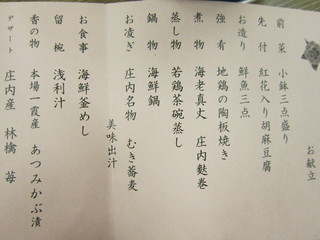 お献立
前菜 小鉢三点盛り
先付 紅花入り胡麻豆腐
お造り 鮮魚三点
強肴 地鶏の陶板焼き
煮物 海老真丈 庄内麩巻
蒸し物 若鶏茶碗蒸し
鍋物 海鮮鍋
お凌ぎ 庄内名物 むき蕎麦
美味出汁
お食事 海鮮釜めし
留椀 浅利汁
香の物 本場一霞産 あつみかぶ漬
デザート 庄内産 林檎 苺